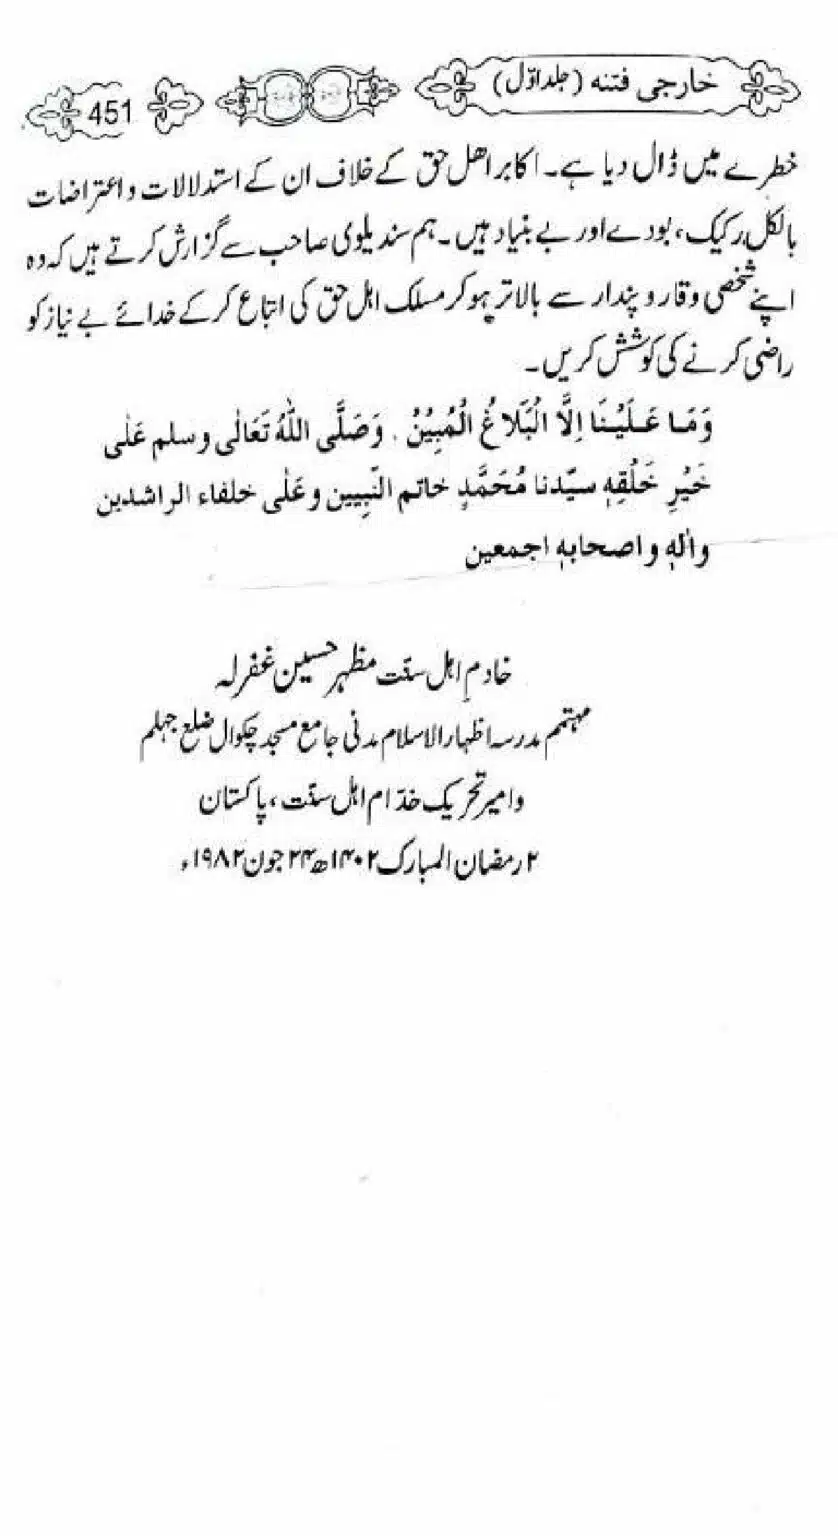 خارجی فتنہ (جلد اوّل)
451
خطرے میں ڈال دیا ہے۔ اکابر اھل حق کے خلاف ان کے استدلالات و اعتراضات
بالکل رکیک، بودے اور بے بنیاد ہیں۔ ہم سندیلوی صاحب سے گزارش کرتے ہیں کہ وہ
اپنے شخصی وقار و پندار سے بالاتر ہو کر مسلک اہل حق کی اتباع کر کے خدائے بے نیاز کو
راضی کرنے کی کوشش کریں۔
وَمَا عَلَيْنَا اِلَّا الْبَلَاغُ الْمُبِيْنُ. وَصَلَّى اللهُ تَعَالٰى وسلم عَلٰى
خَيْرِ خَلْقِهٖ سيّدنا مُحَمَّدٍ خاتم النَّبِيين وعَلٰى خلفاء الراشدين
واٰلهٖ واصحابهٖ اجمعين
خادمِ اہل سنّت مظہر حسین غفرلہ
مہتمم مدرسہ اظہار الاسلام مدنی جامع مسجد چکوال ضلع جہلم
و امیر تحریک خدّام اہل سنّت، پاکستان
۲ رمضان المبارک ۱۴۰۲ھ ۲۴ جون ۱۹۸۲ء